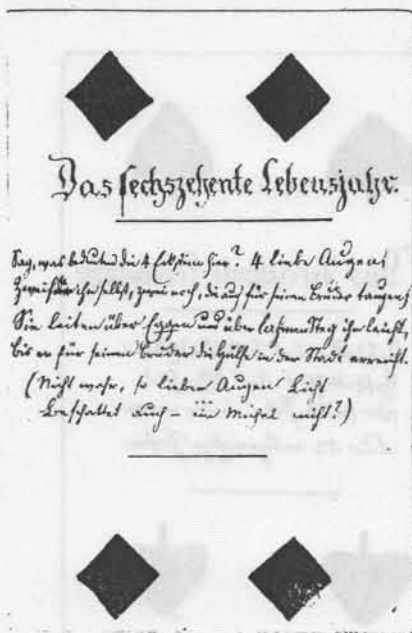 Das sechszehente Lebensjahr.
Sag, was bedeuten die 4 Eckstein hier? 4 liebe Augen!
Zwei für ihn selbst, zwei noch, die auch für seinen Bruder taugen!
Sie leiten über Eggen und über Steg ihn leicht,
bis er für seinen Bruder die Hülfe in der Stadt erreicht.
(Nicht wahr, so lieber Augen Licht
beschattet auch – ein Michel nicht?)